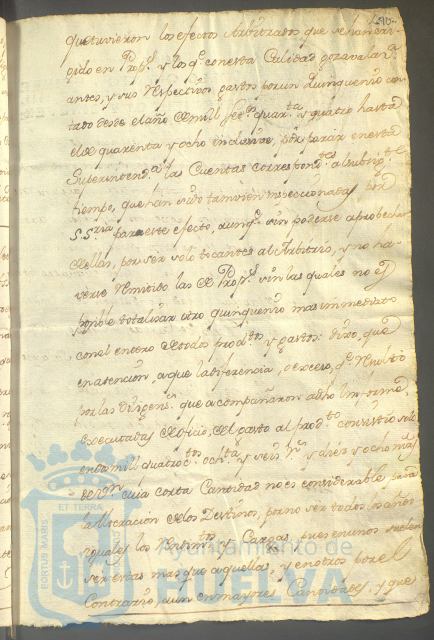 que tuvieron los efectos Arbitrados que se han eri
gido en Prop.s y los q.e con esta Calidad gozava lan.
antes, y sus respectivos gastos por un Quinquenio con
tado desde el año de mil sett.s quar.ta y quatro hasta
el de quarenta y ocho inclusive, por parar en esta
Superintend.a las Cuentas correspond.tes al
tiempo, que han sido tamvien inspeccionadas por
S.Sria para este efecto, aunq.e sin poderse aprobechar
de ellas, por ser solo tocantes al Arbitrio, y no ha
verse remitido las de Prop.s sin las quales no es
posible totalizar otro quinquenio mas immediato
con el entero de todos prod.tos y gastos: dixo, que
en atencion, a que la diferencia, o exceso, q.e resultó
por las Diligens.s que acompañaron a dho Informe,
executadas de oficio, del gasto al prod.to consistio solo
en da mil quatroz.tos och.ta y seis r.s y diez y ocho mrs
de v.n cuia corta Cantidad no es considerable para
alteracion de los Destinos, por no ser todos los años
yguales los y Cargas, pues en unos suelen
ser estas mas que aquellas, y en otros por el
Contrario, aun en mayores Cantidades, y que
PORTUS MARIS
ET TERRA
Ayuntamiento de
HUELVA